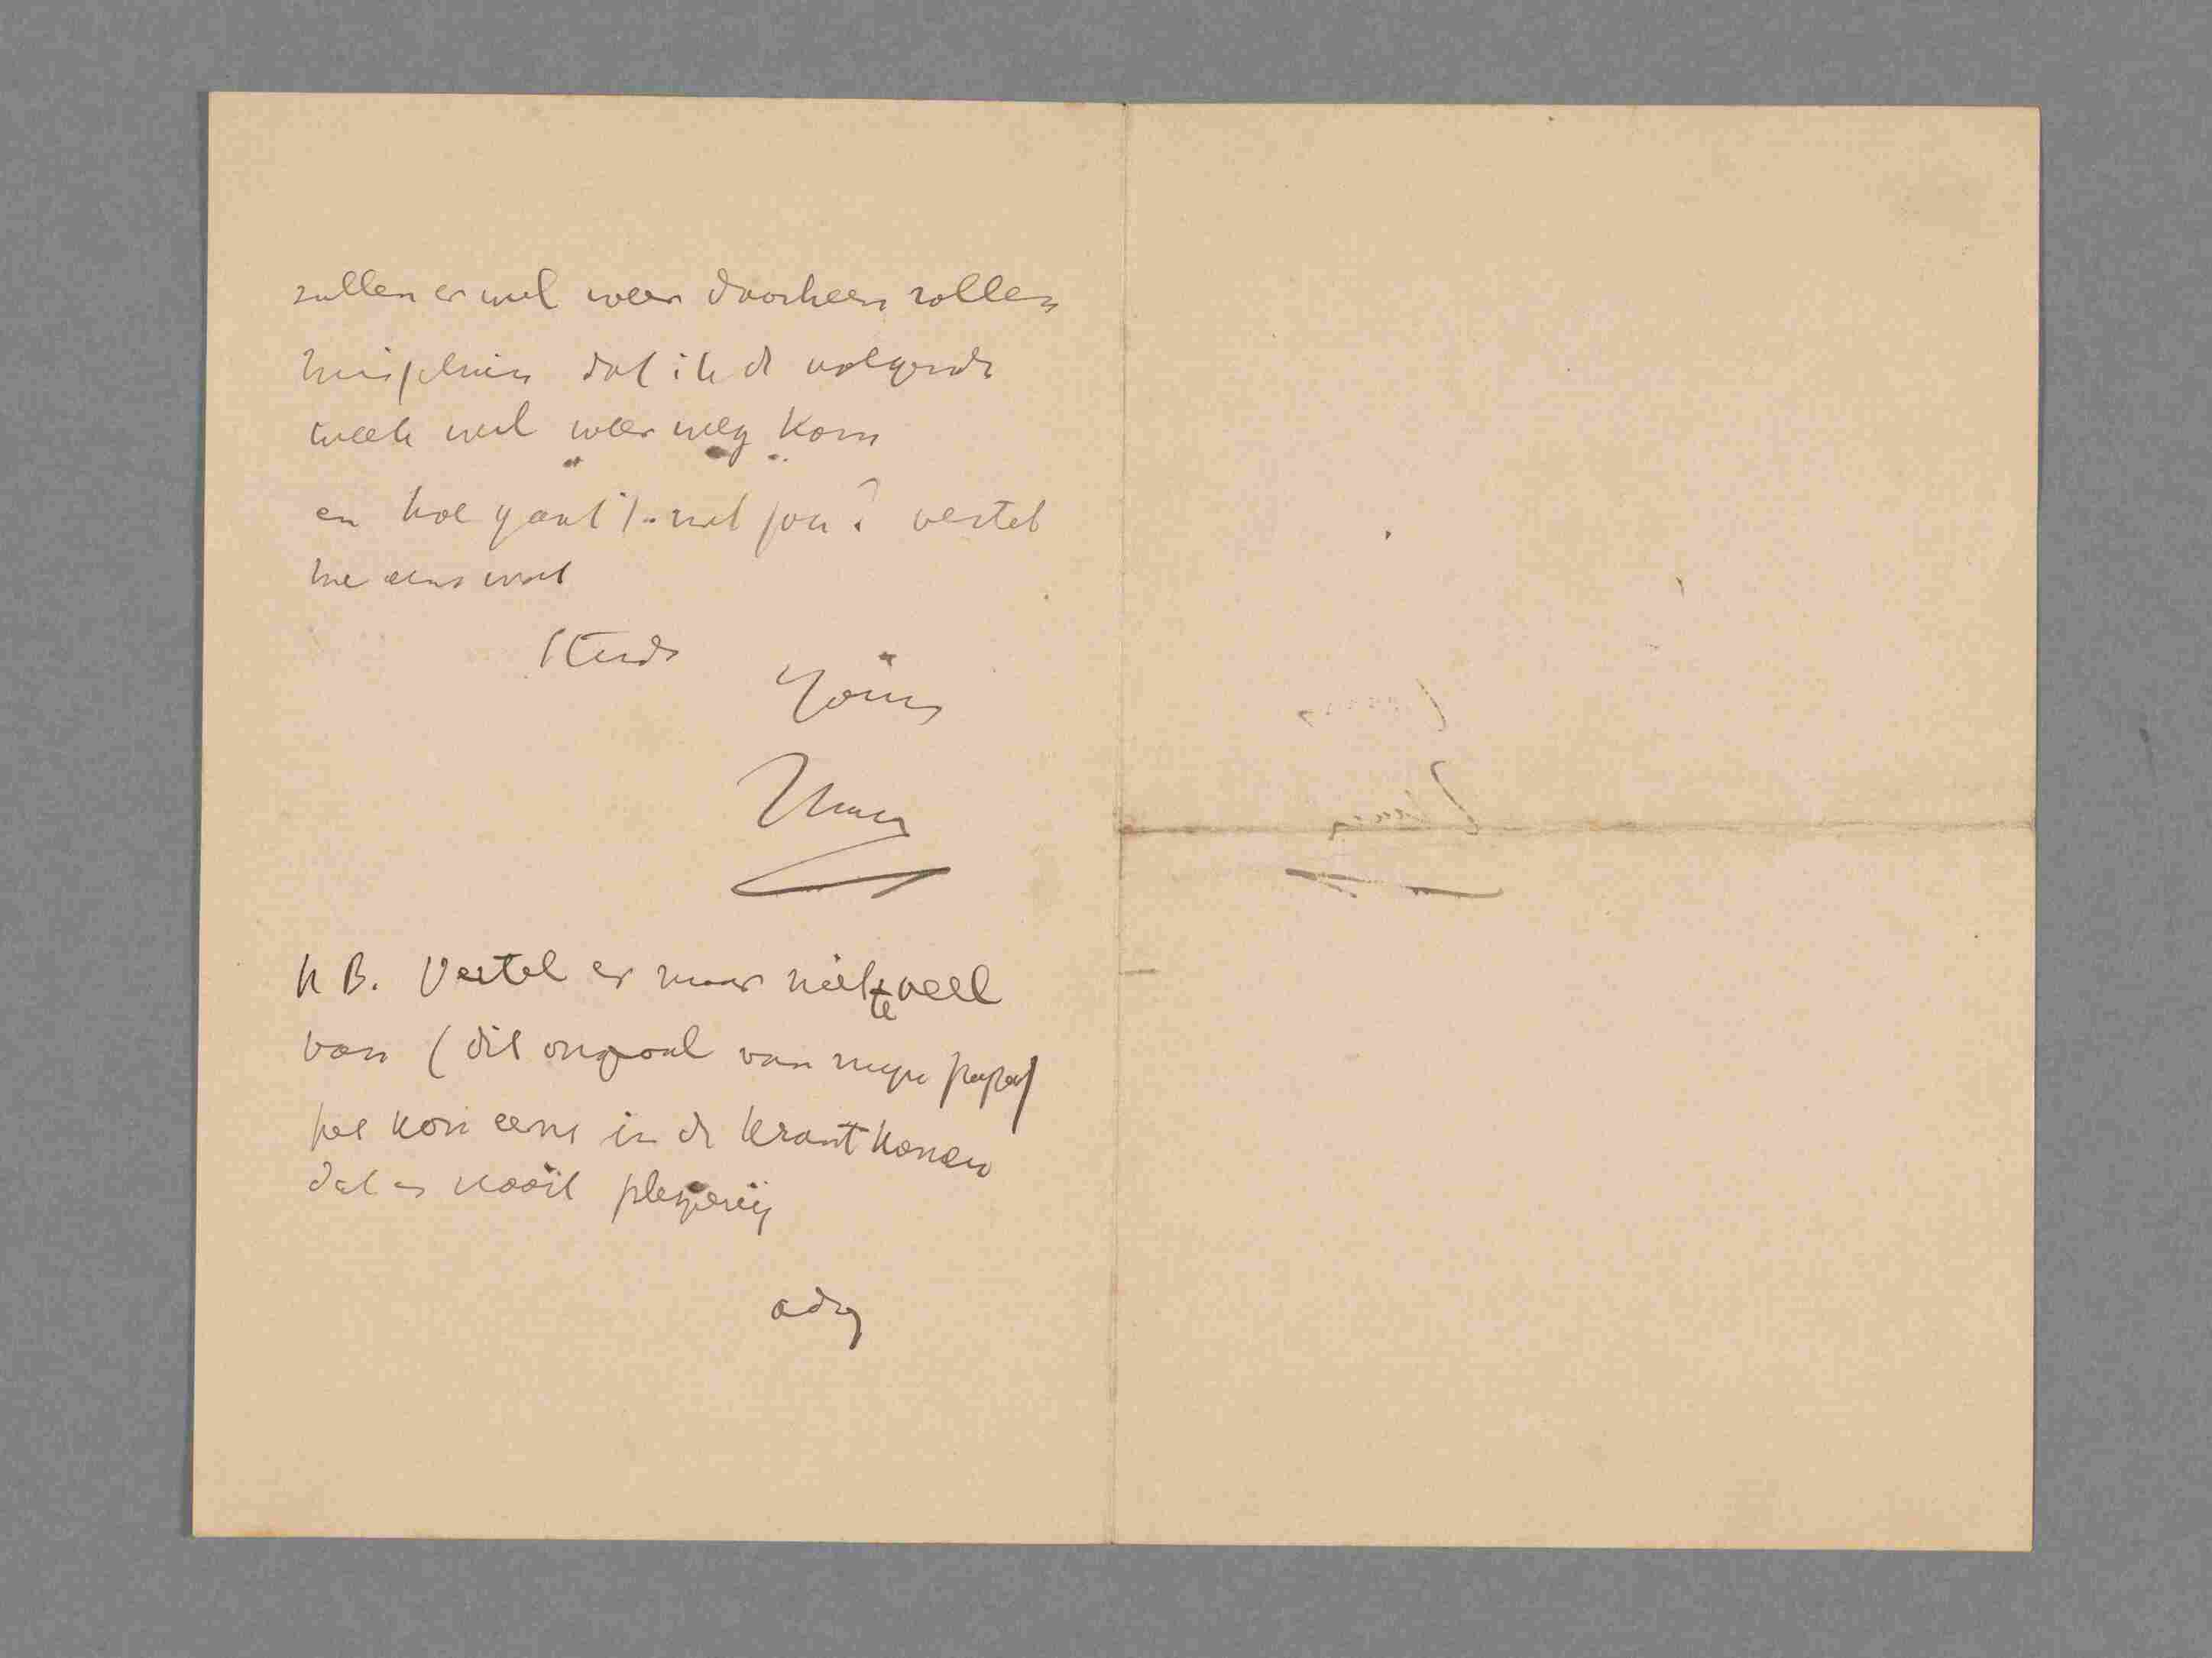 zullen er wel weer doorheen rollen
misschien dat ik de volgende
week wel weer weg kom
en hoe gaat 't met jou? vertel
me eens wat
Steeds
Yours
N B. Vertel er maar niet te veel
van (dit ongeval van mijn papa)
het kon eens in de krant komen
dat is nooit plezierig
adzg